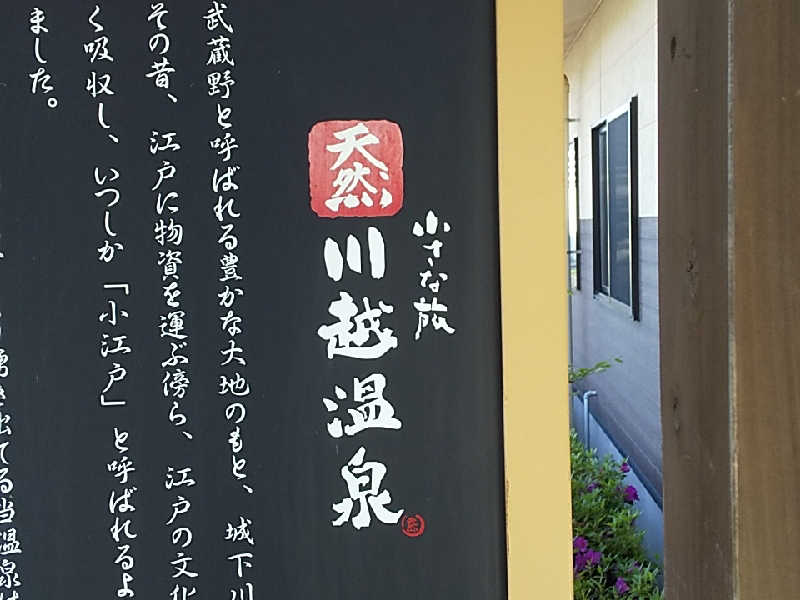 小さな旅
天然
川越温泉
武蔵野と呼ばれる豊かな大地のもと、城下川
その昔、江戸に物資を運ぶ傍ら、江戸の文化
く吸収し、いつしか「小江戸」と呼ばれるよ
ました。
湧き出てる当温泉は